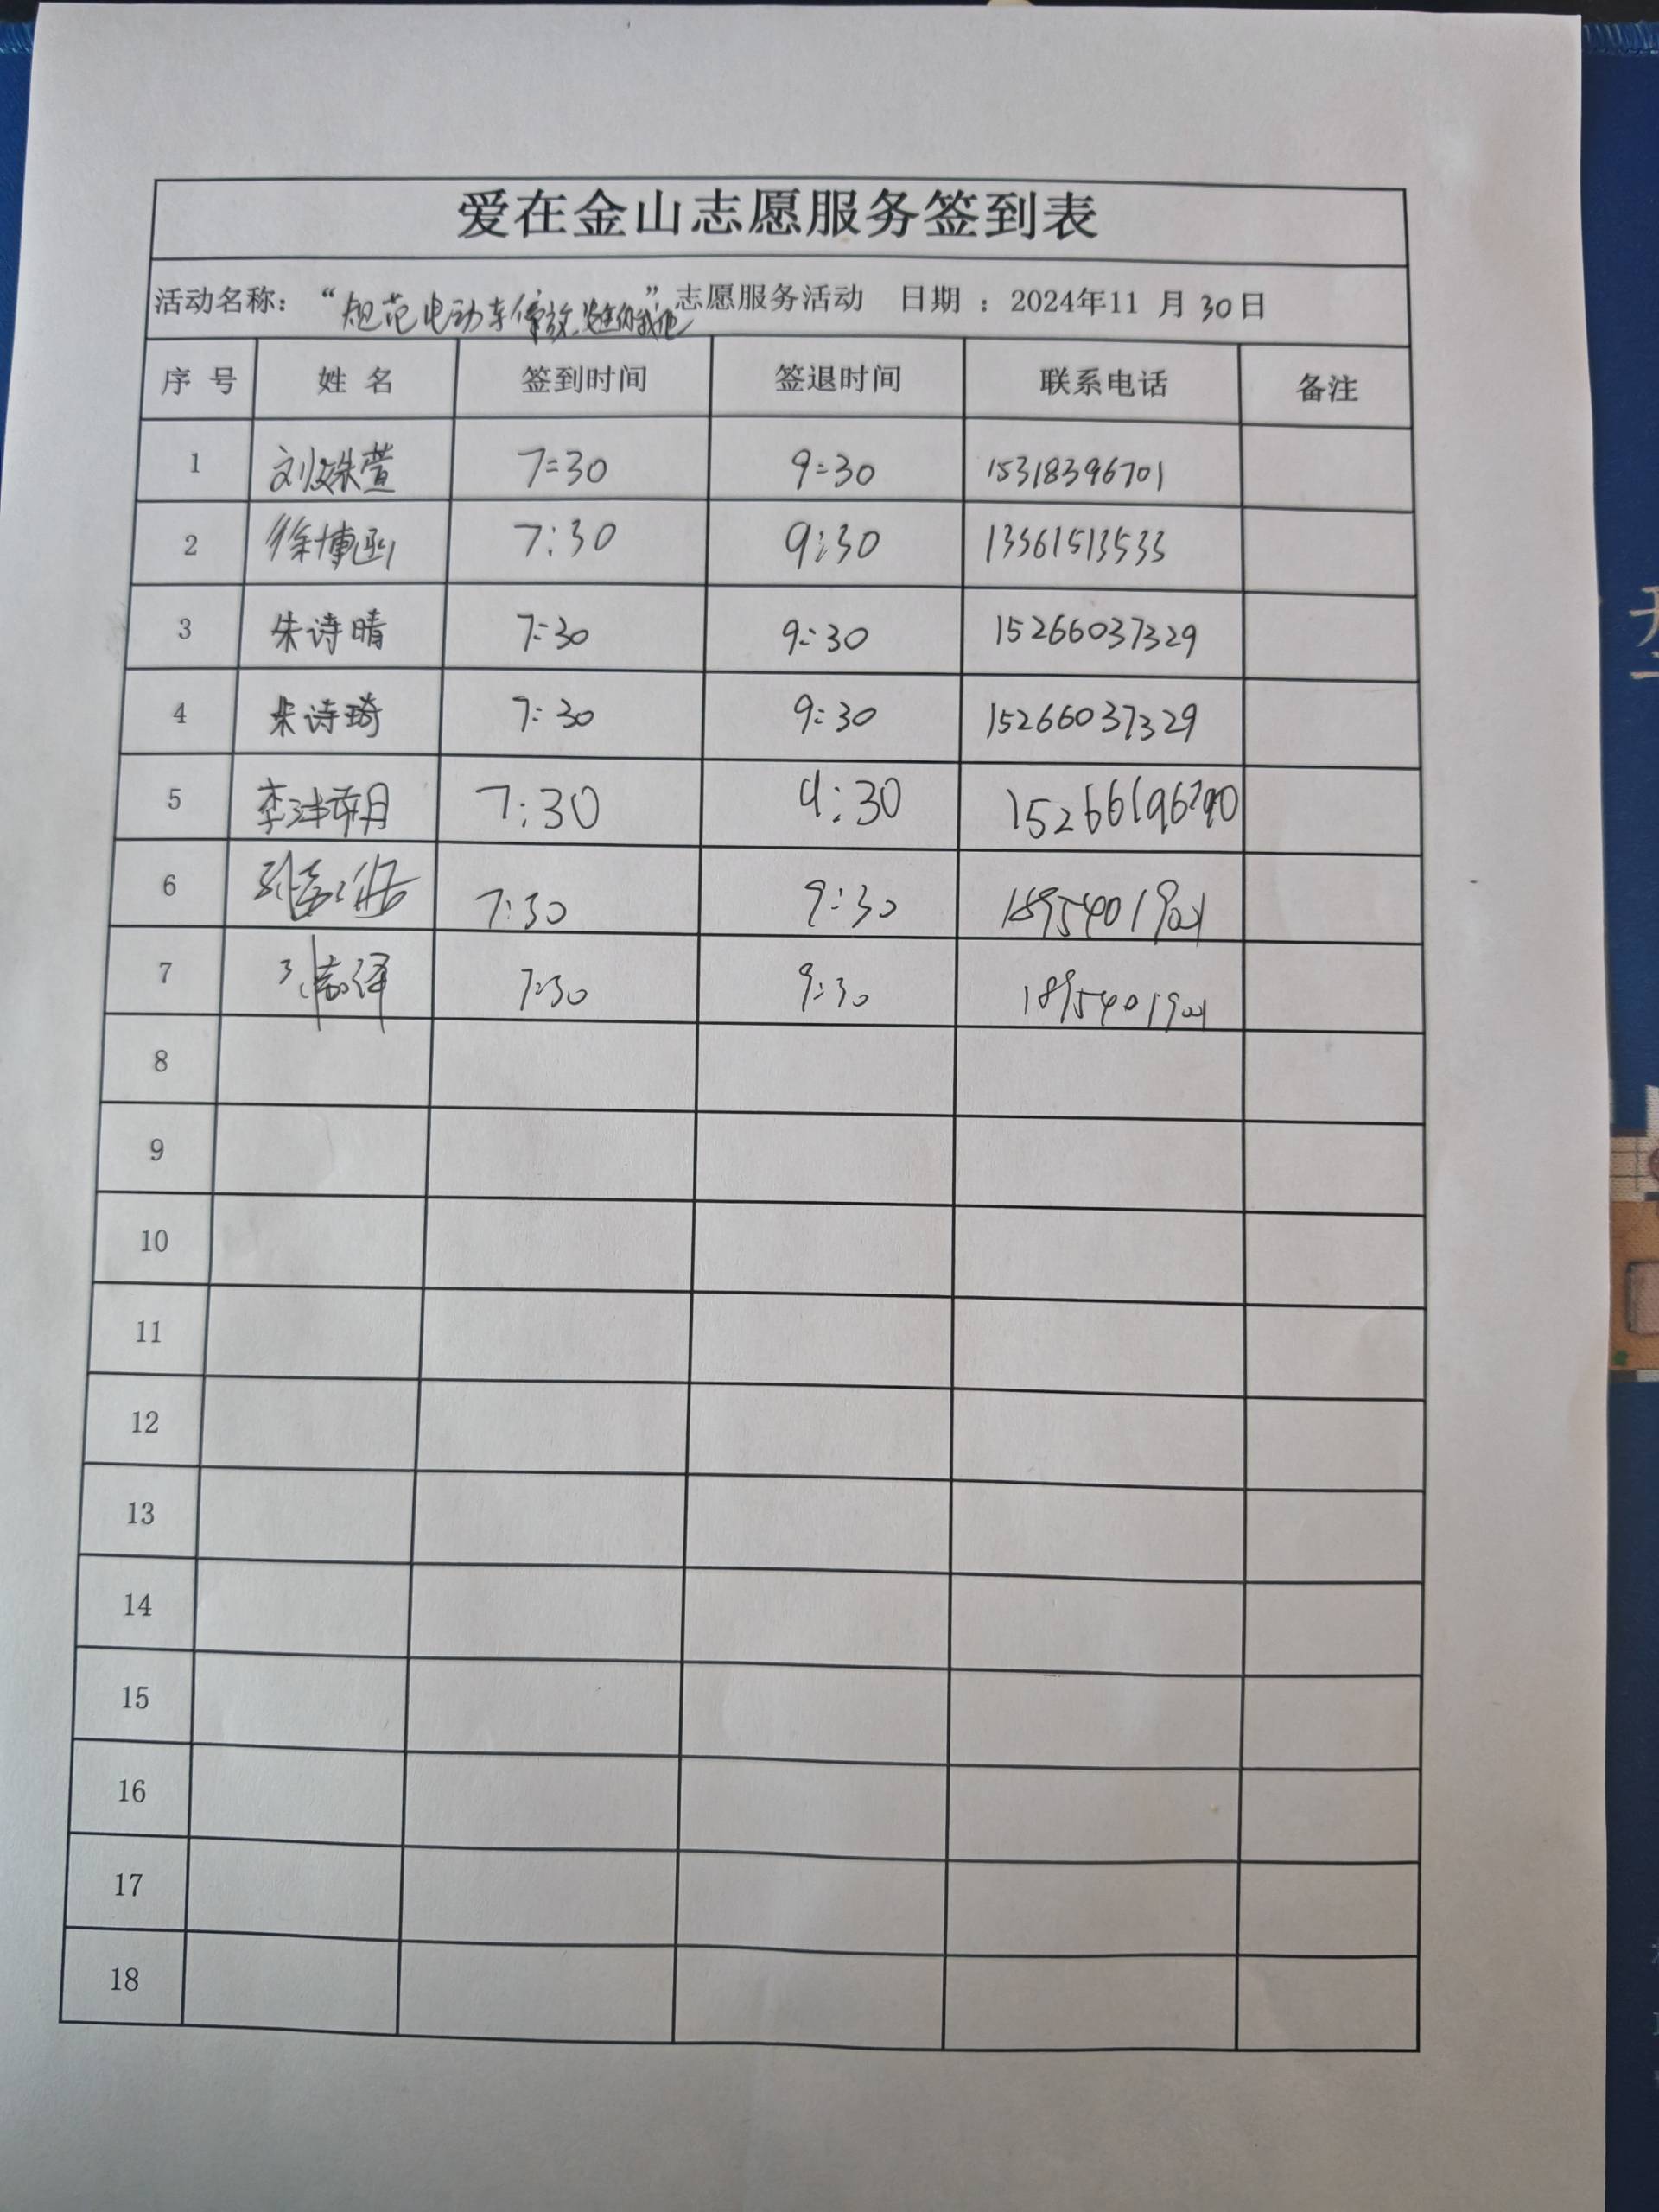 爱在金山志愿服务签到表
活动名称：“规范电动车停放,安全你我他”志愿服务活动 日期：2024年11月30日
序号 姓名 签到时间 签退时间 联系电话 备注
1 刘姝萱 7:30 9:30 15318396701
2 徐博函 7:30 9:30 13361513533
3 朱诗晴 7:30 9:30 15266037329
4 朱诗琦 7:30 9:30 15266037329
5 李沣芮月 7:30 9:30
6 7:30 9:30
7 7:30 9:30
8
9
10
11
12
13
14
15
16
17
18